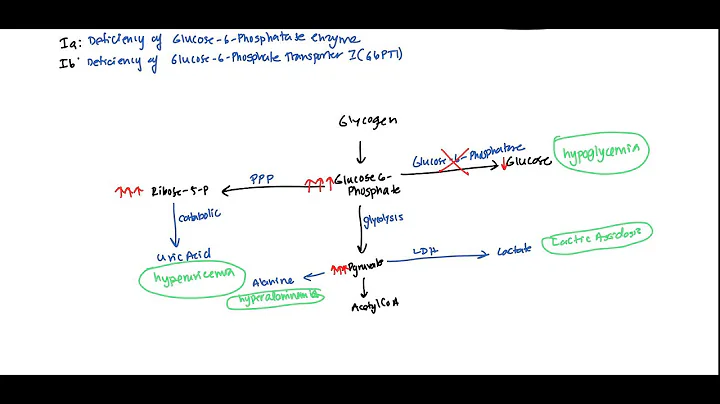 Ia: Deficiency of Glucose-6-Phosphatase enzyme
Ib: Deficiency of Glucose-6-Phosphate Transporter I (G6PTI)
Glycogen
Glucose-6-Phosphatase
Glucose
hypoglycemia
Ribose-5-P
PPP
Glucose 6-
Phosphate
catabolic
glycolysis
Uric Acid
hyperuricemia
Alanine
hyperalaninemia
Pyruvate
LDH
Lactate
Lactic Assidosis
Acetyl CoA